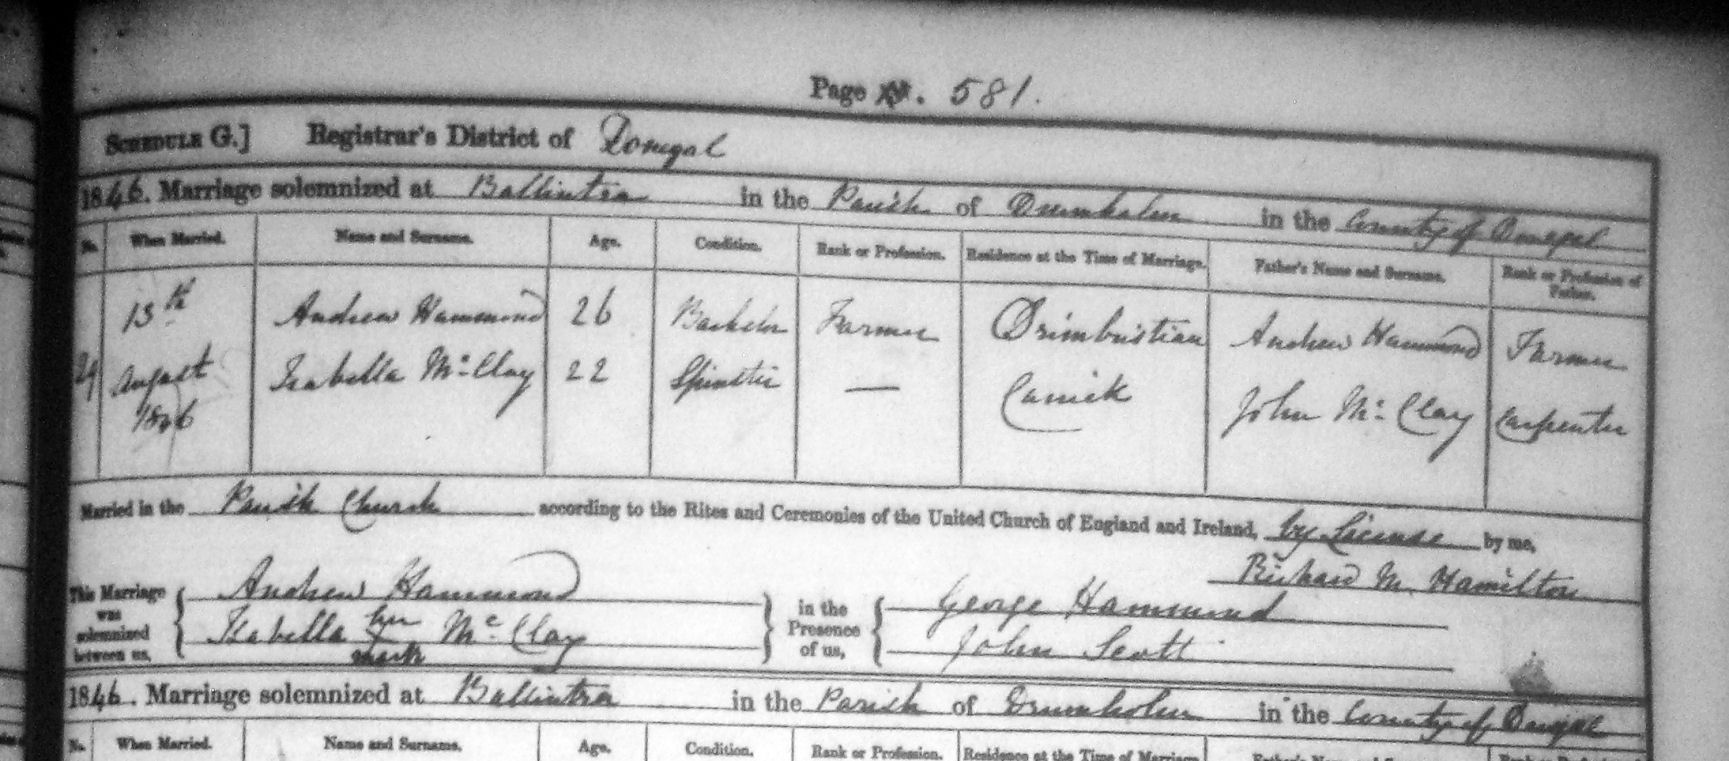 Page 581.
SCHEDULE G.] Registrar's District of Donegal
1846. Marriage solemnized at Ballintra in the Parish of Drumholm in the County of Donegal
No. When Married. Name and Surname. Age. Condition. Rank or Profession. Residence at the Time of Marriage. Father's Name and Surname. Rank or Profession of Father.
13th Andrew Hammond 26 Bachelor Farmer Drimbristian Andrew Hammond Farmer
29 August 1846 Isabella McClay 22 Spinster — Carrick John McClay Carpenter
Married in the Parish Church according to the Rites and Ceremonies of the United Church of England and Ireland, by License by me,
Richard M. Hamilton
This Marriage was solemnized between us, Andrew Hammond in the Presence of us, George Hammond
Isabella her mark McClay John Scott
1846. Marriage solemnized at Ballintra in the Parish of Drumholm in the County of Donegal
No. When Married. Name and Surname. Age. Condition. Rank or Profession. Residence at the Time of Marriage Father's Name and Surname.